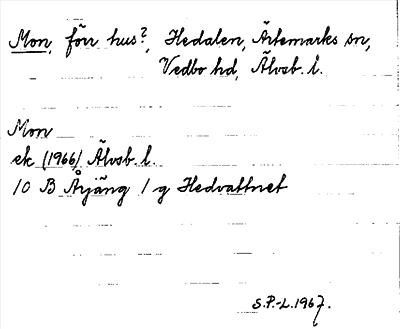 Mon, förr hus?, Hedalen, Ärtemarks sn,
Vedbo hd, Älvsb. l.
Mon
ek (1966) Älvsb. l.
10 B Årjäng 1 g Hedvattnet
S.P.-L.1967.